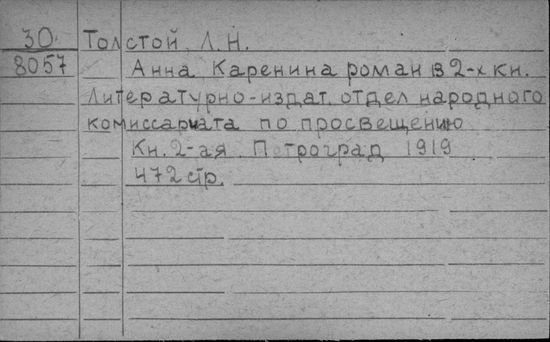 30. Толстой Л. Н.
8057 Анна Каренина роман в 2-х кн.
Литературно-издат. отдел народного
комиссариата по просвещению
Кн. 2-ая. Петроград 1919
472 стр.